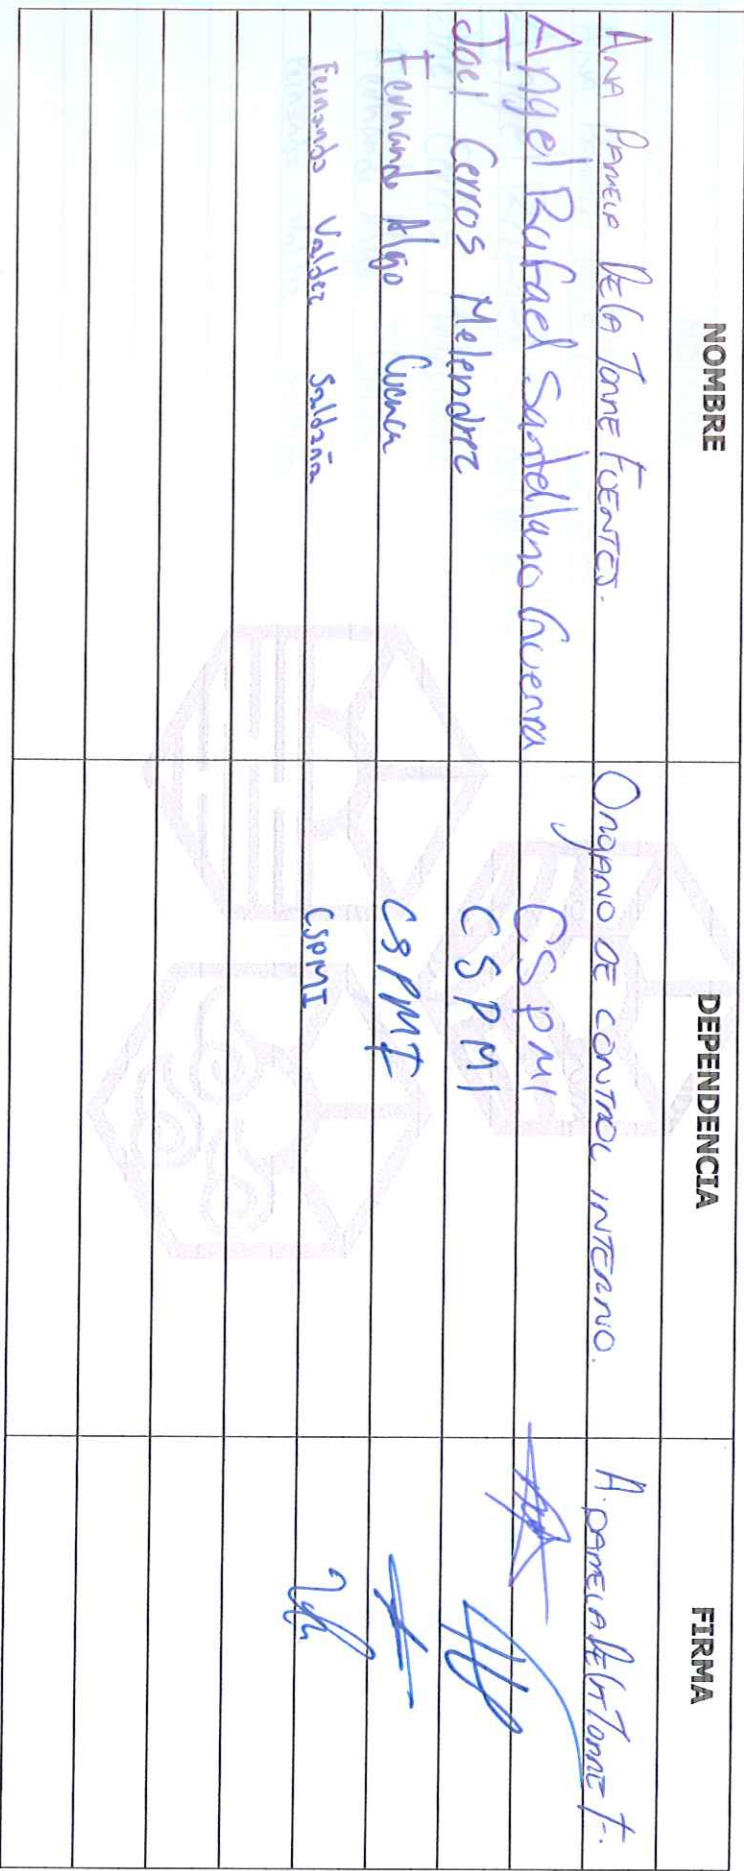 NOMBRE DEPENDENCIA FIRMA
ANA PAMELA DE LA TORRE FUENTES. ORGANO DE CONTROL INTERNO. A. PAMELA DE LA TORRE F.
Angel Rafael Santellano Guerra CSPMI
Joel Cerros Melendrez CSPMI
Fernando Cuenca CSPMI
Fernando Valdez Saldaña CSPMI